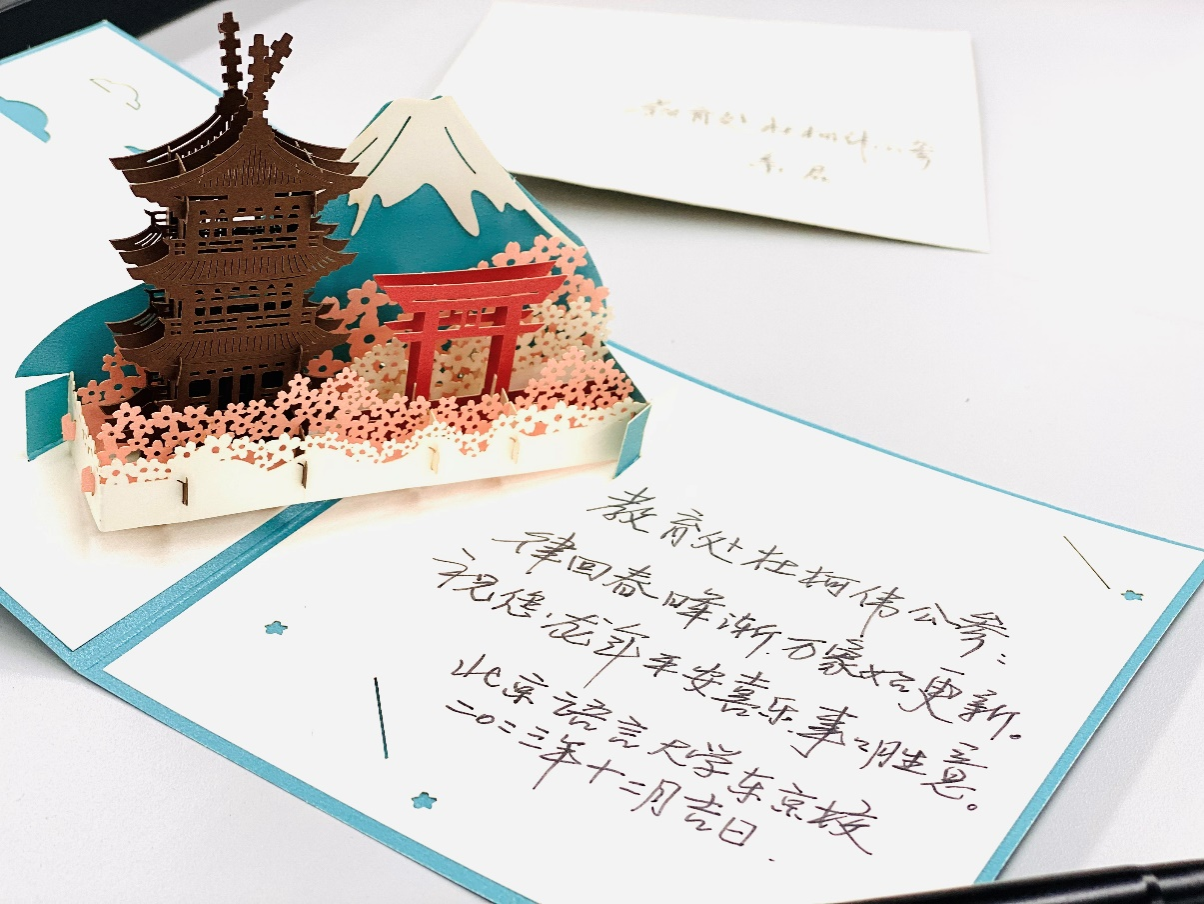 教育处杜柯伟公参
亲启
教育处杜柯伟公参：
律回春晖渐，万象始更新。
祝您龙年平安喜乐，事事胜意。
北京语言大学东京校
二〇二三年十二月吉日.